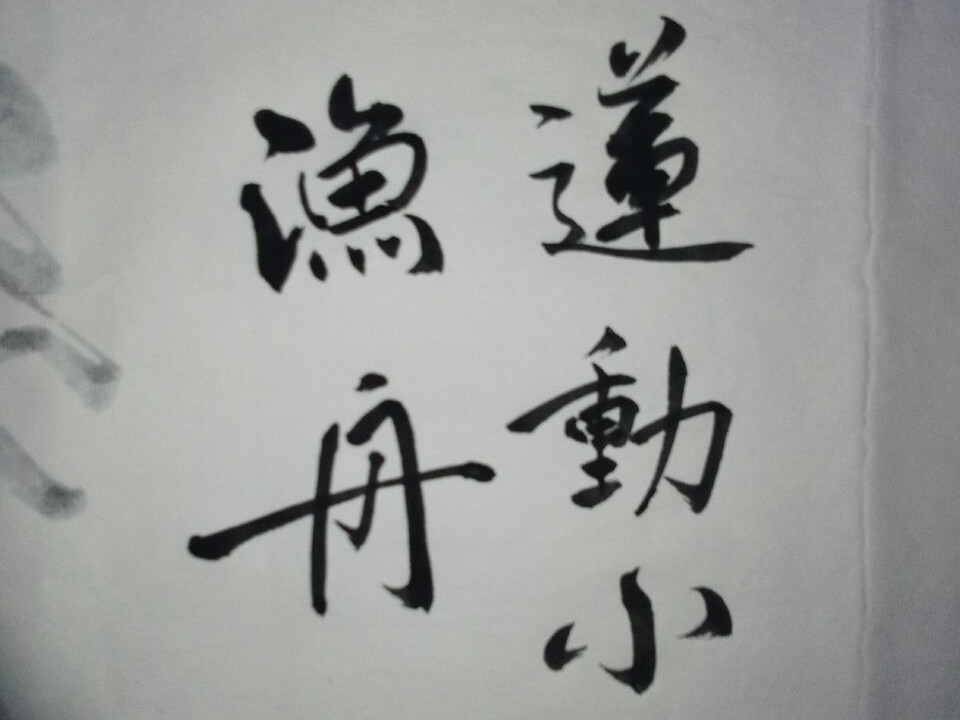 蓮動小
漁舟